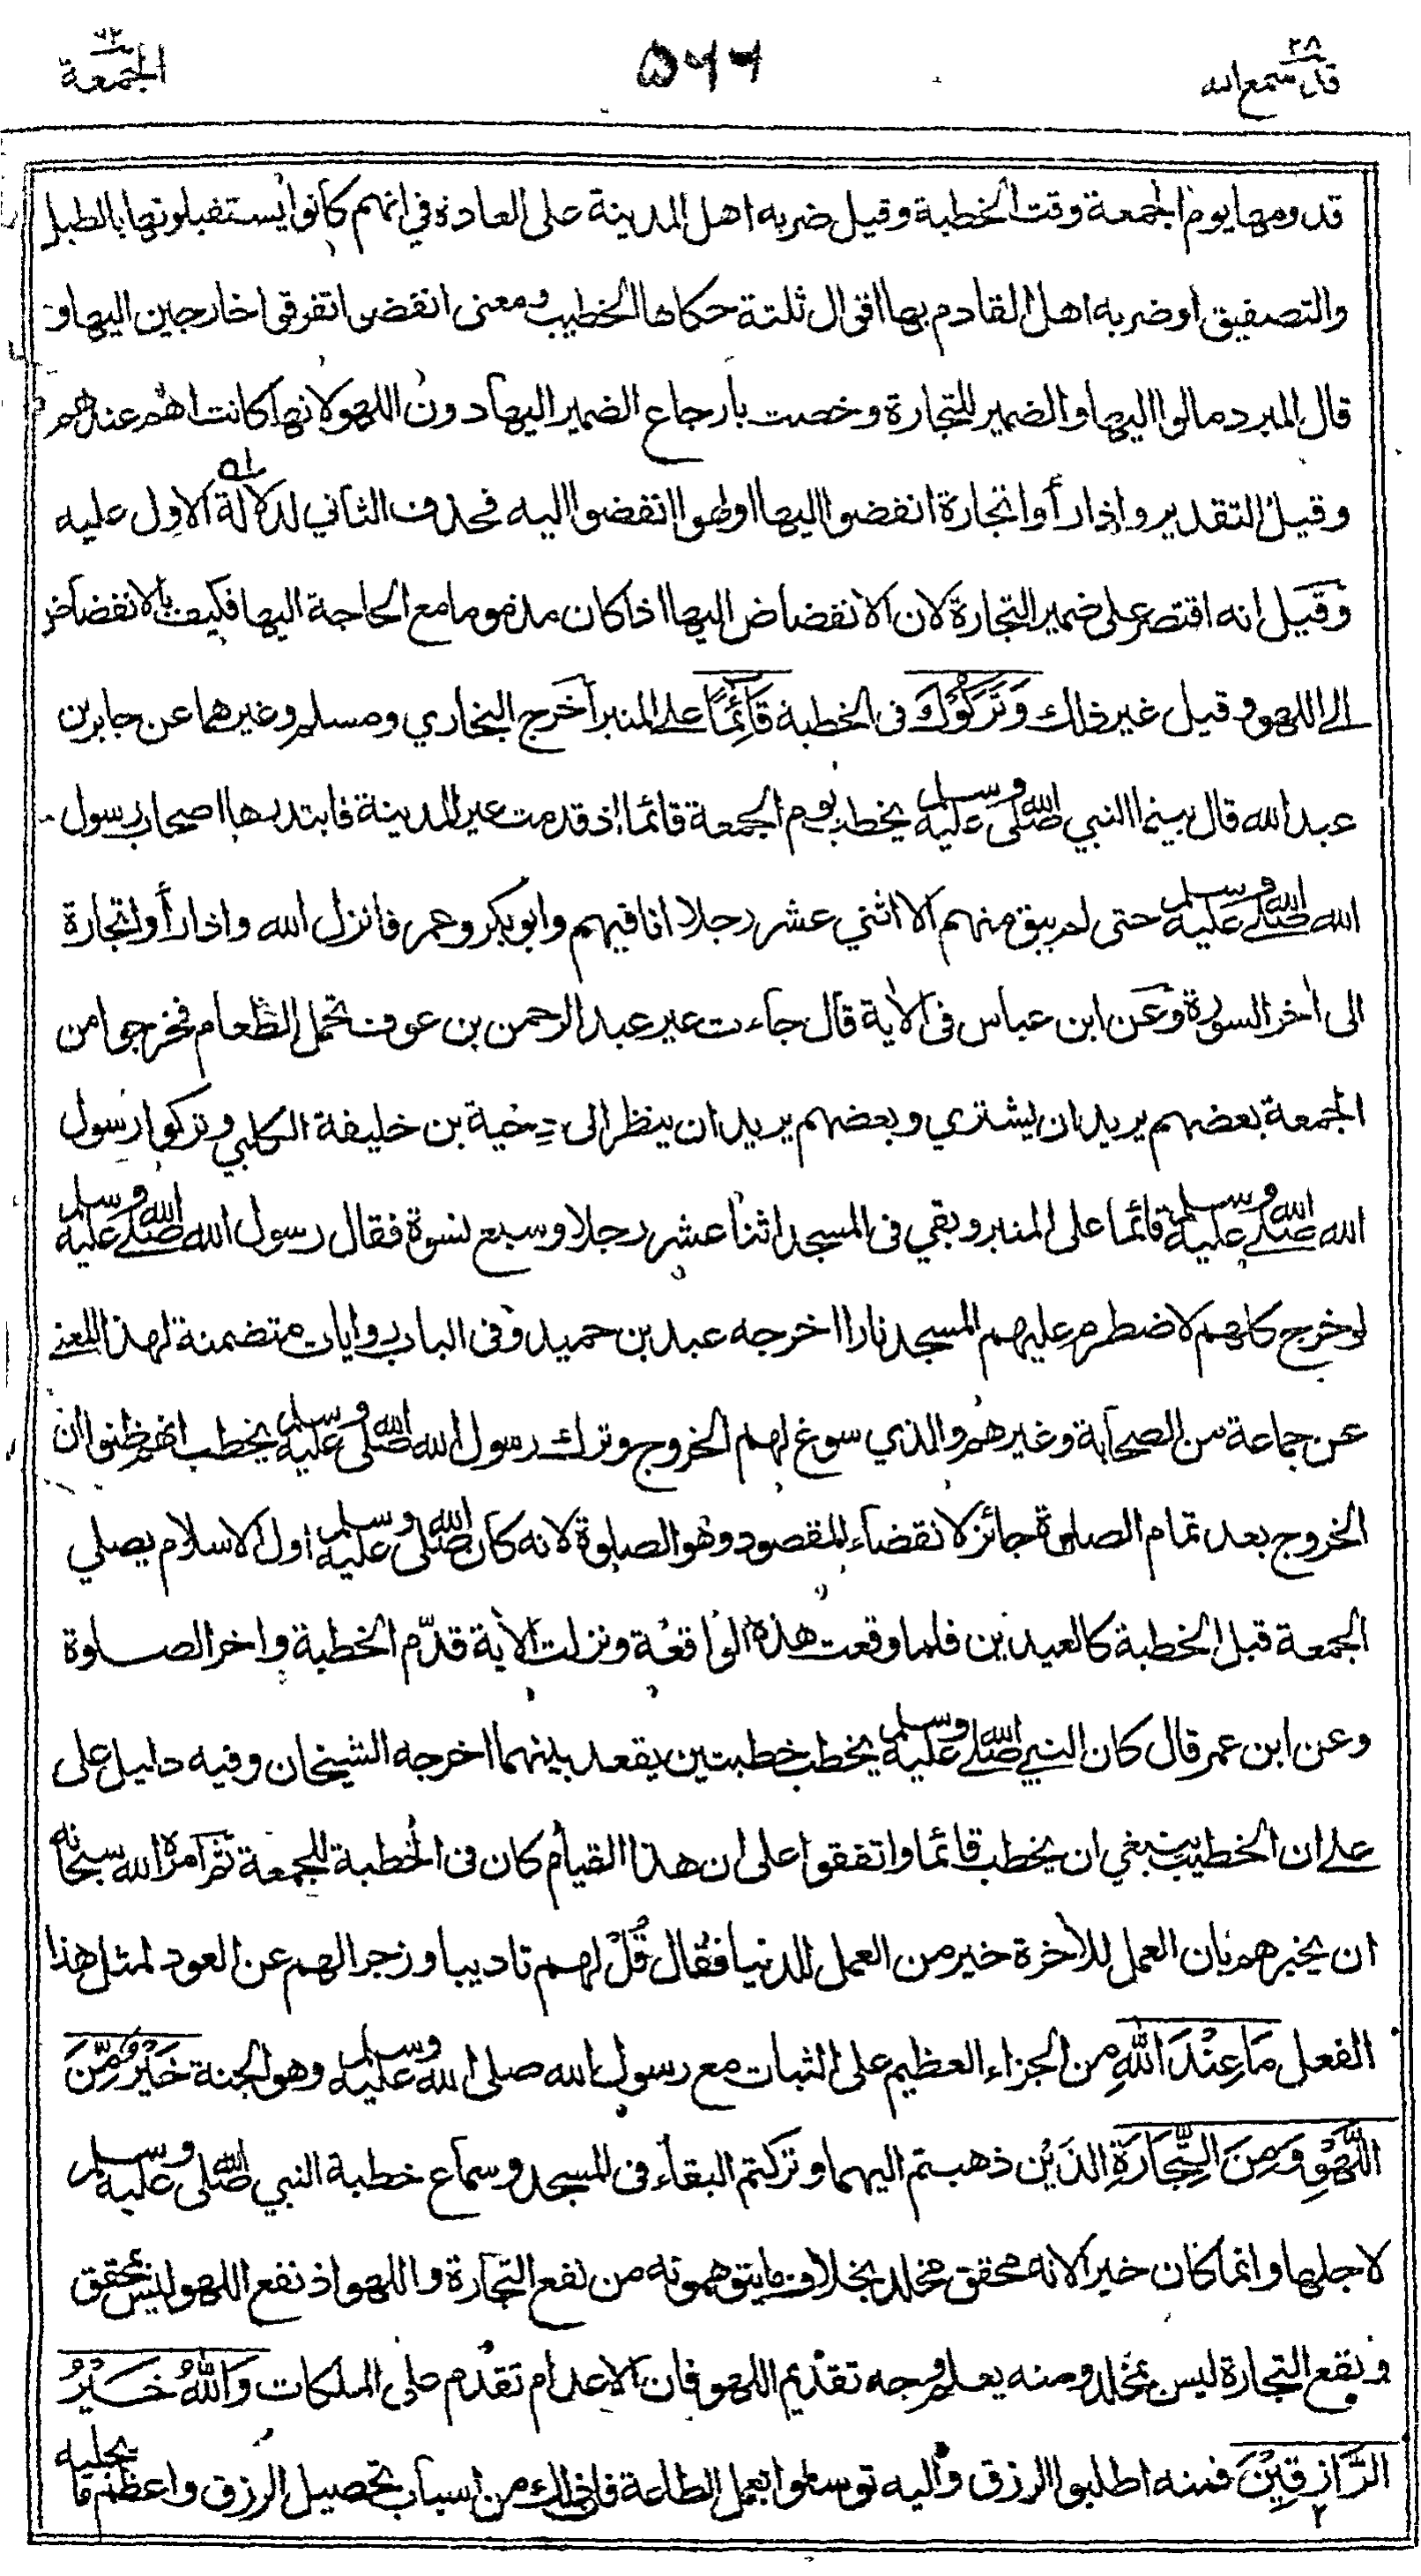 ٢٨
قال سمع الله
٥٦٦
٦٢
الجمعة
قدومها يوم الجمعة وقت الخطبة وقيل ضربه اهل المدينة على العادة في انهم كانوا يستقبلونها بالطبل
والتصفيق او ضربه اهل القادم بها اقوال ثلثة حكاها الخطيب ومعنى انفضوا تفرقوا خارجين اليها و
قال المبرد مالوا اليها والضمير للتجارة وخصت بارجاع الضمير اليها دون اللهو لانها كانت اهم عندهم
وقيل التقدير واذا رأوا تجارة انفضوا اليها او لهوا انفضوا اليه فحذف الثاني لدلالة الاول عليه
وقيل انه اقتصر على ضمير التجارة لان الانفضاض اليها اذا كان مذموما مع الحاجة اليها فكيف بالانفضاض
الى اللهو وقيل غير ذلك وَتَرَكُوْكَ في الخطبة قَائِمًا على المنبر أخرج البخاري ومسلم وغيرهما عن جابر بن
عبد الله قال بينما النبي صلى الله عليه وسلم يخطب يوم الجمعة قائما اذ قدمت عير المدينة فابتدرها اصحاب رسول
الله صلى الله عليه وسلم حتى لم يبق منهم الا اثني عشر رجلا انا فيهم وابو بكر وعمر فانزل الله واذا رأوا تجارة
الى اخر السورة وعن ابن عباس في الاية قال جاءت عير عبد الرحمن بن عوف تحمل الطعام فخرجوا من
الجمعة بعضهم يريد ان يشتري وبعضهم يريد ان ينظر الى دحية بن خليفة الكلبي وتركوا رسول
الله صلى الله عليه وسلم قائما على المنبر وبقي في المسجد اثنا عشر رجلا وسبع نسوة فقال رسول الله صلى الله عليه وسلم
لو خرج كلهم لاضطرم عليهم المسجد نارا اخرجه عبد بن حميد وفي الباب روايات متضمنة لهذا المعنى
عن جماعة من الصحابة وغيرهم والذي سوغ لهم الخروج وترك رسول الله صلى الله عليه وسلم يخطب انهم ظنوا ان
الخروج بعد تمام الصلوة جائز لانقضاء المقصود وهو الصلوة لانه كان صلى الله عليه وسلم اول الاسلام يصلي
الجمعة قبل الخطبة كالعيدين فلما وقعت هذه الواقعة ونزلت الأية قدّم الخطبة واخر الصلوة
وعن ابن عمر قال كان النبي صلى الله عليه وسلم يخطب خطبتين يقعد بينهما اخرجه الشيخان وفيه دليل على
على ان الخطيب ينبغي ان يخطب قائما واتفقوا على ان هذا القيام كان في الخطبة للجمعة ثم امره الله سبحانه
ان يخبرهم بان العمل للأخرة خير من العمل للدنيا فقال قُلْ لهم تاديبا وزجرا لهم عن العود لمثل هذا
الفعل مَا عِنْدَ اللّٰهِ من الجزاء العظيم على الثبات مع رسول الله صلى الله عليه وسلم وهو الجنة خَيْرٌ مِّنَ
اللَّهْوِ وَمِنَ التِّجَارَةِ الذَيْن ذهبتم اليهما وتركتم البقاء في المسجد وسماع خطبة النبي صلى الله عليه وسلم
لاجلها وانما كان خيرا لانه محقق مخلد بخلاف ما يتوهمونه من نفع التجارة واللهو اذ نفع اللهو ليس بمحقق
ونفع التجارة ليس بمخلد ومنه يعلم وجه تقديم اللهو فان الاعدام تقدم على الملكات وَاللّٰهُ خَيْرُ
الرَّازِقِيْنَ فمنه اطلبوا الرزق واليه توسلوا بعمل الطاعة فان ذلك من اسباب تحصيل الرزق واعظم ما يجلبه
٢